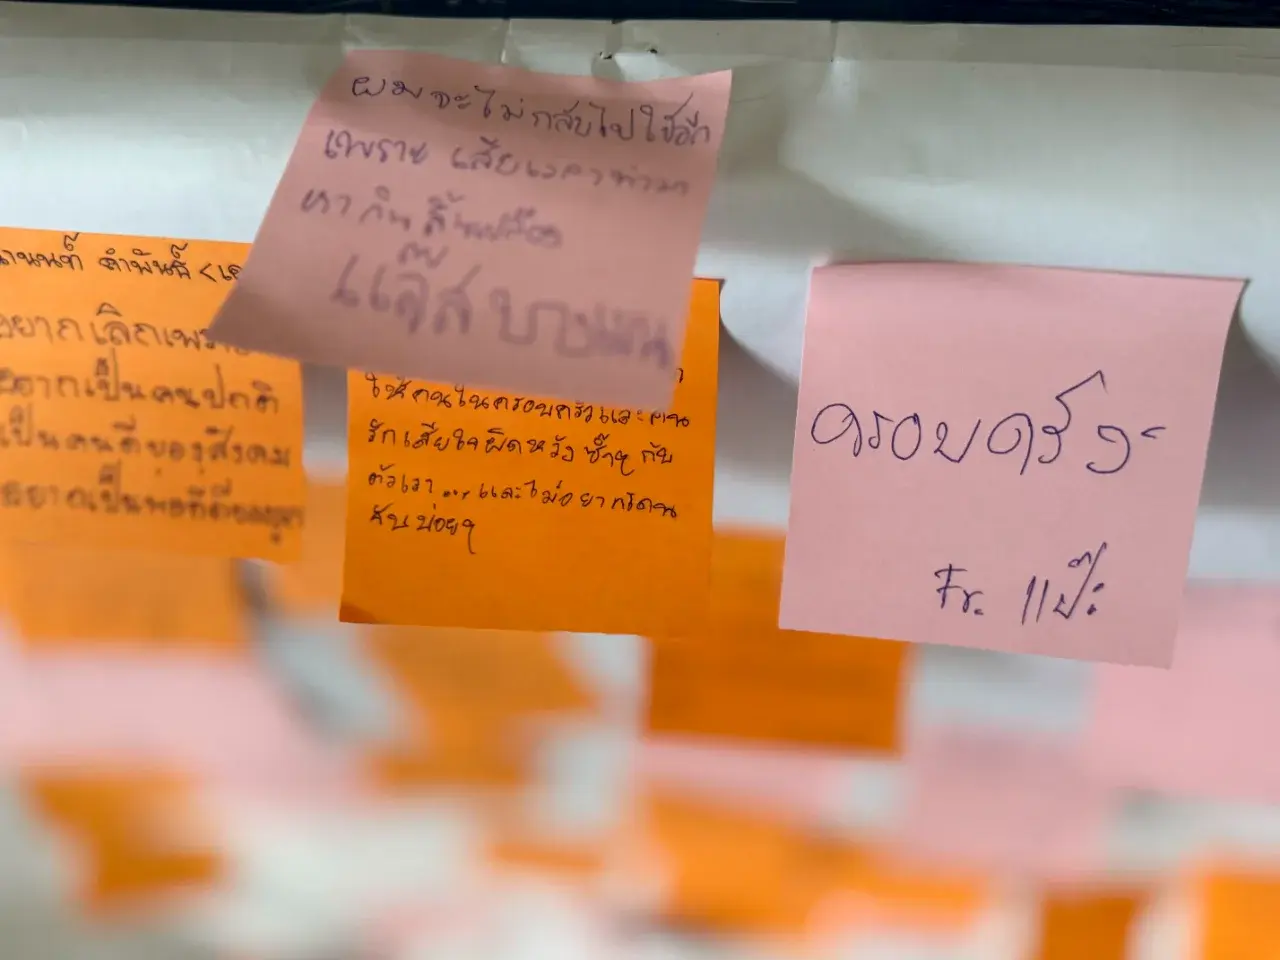 ผมจะไม่กลับไปใช้อีก
เพราะ เสียเวลาทำมา
หากิน สิ้นเปลือง
แอ๊ด บางแค
คำพันธ์
อยากเลิกเพราะ
อยากเป็นคนปกติ
เป็นคนดีของสังคม
อยากเป็นพ่อที่ดีของลูก
ให้คนในครอบครัวและคน
รักเสียใจผิดหวังซ้ำๆ กับ
ตัวเรา... และไม่อยากโดน
จับบ่อยๆ
ครอบครัว
Fr. แป๊ะ